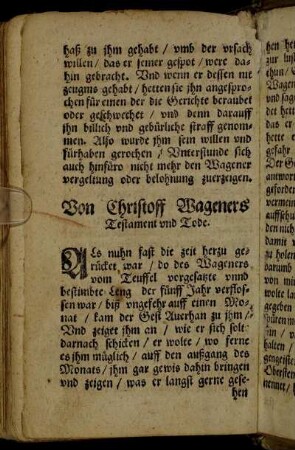 haß zu jhm gehabt / vmb der vrsach
willen / das er seiner gespot / were da-
hin gebracht. Vnd wenn er dessen nit
zeugnis gehabt / hetten sie jhn angespro-
chen für einen der die Gerichte beraubet
oder geschwechet / vnd denn darauff
jhn billich vnd gebürliche straff genom-
men. Also wurde jhm sein willen vnd
fürhaben gerochen / Vnterstunde sich
auch hinfüro nicht mehr den Wagener
vergeltung oder belohnung zuerzeigen.
Von Christoff Wageners
Testament vnd Tode.
ALs nuhn fast die zeit herzu ge-
rücket war / do des Wageners
vom Teuffel vorgesatzte vnnd
bestimbte Leng der fünff Jahr verflos-
sen war / biß vngefehr auff einen Mo-
nat / kam der Geist Auerhan zu jhm /
Vnd zeiget jhm an / wie er sich solt
darnach schicken / er wolte / wo ferne
es jhm müglich / auff den außgang des
Monats / jhm gar gewis dahin bringen
vnd zeigen / was er langst gerne gese-
hen